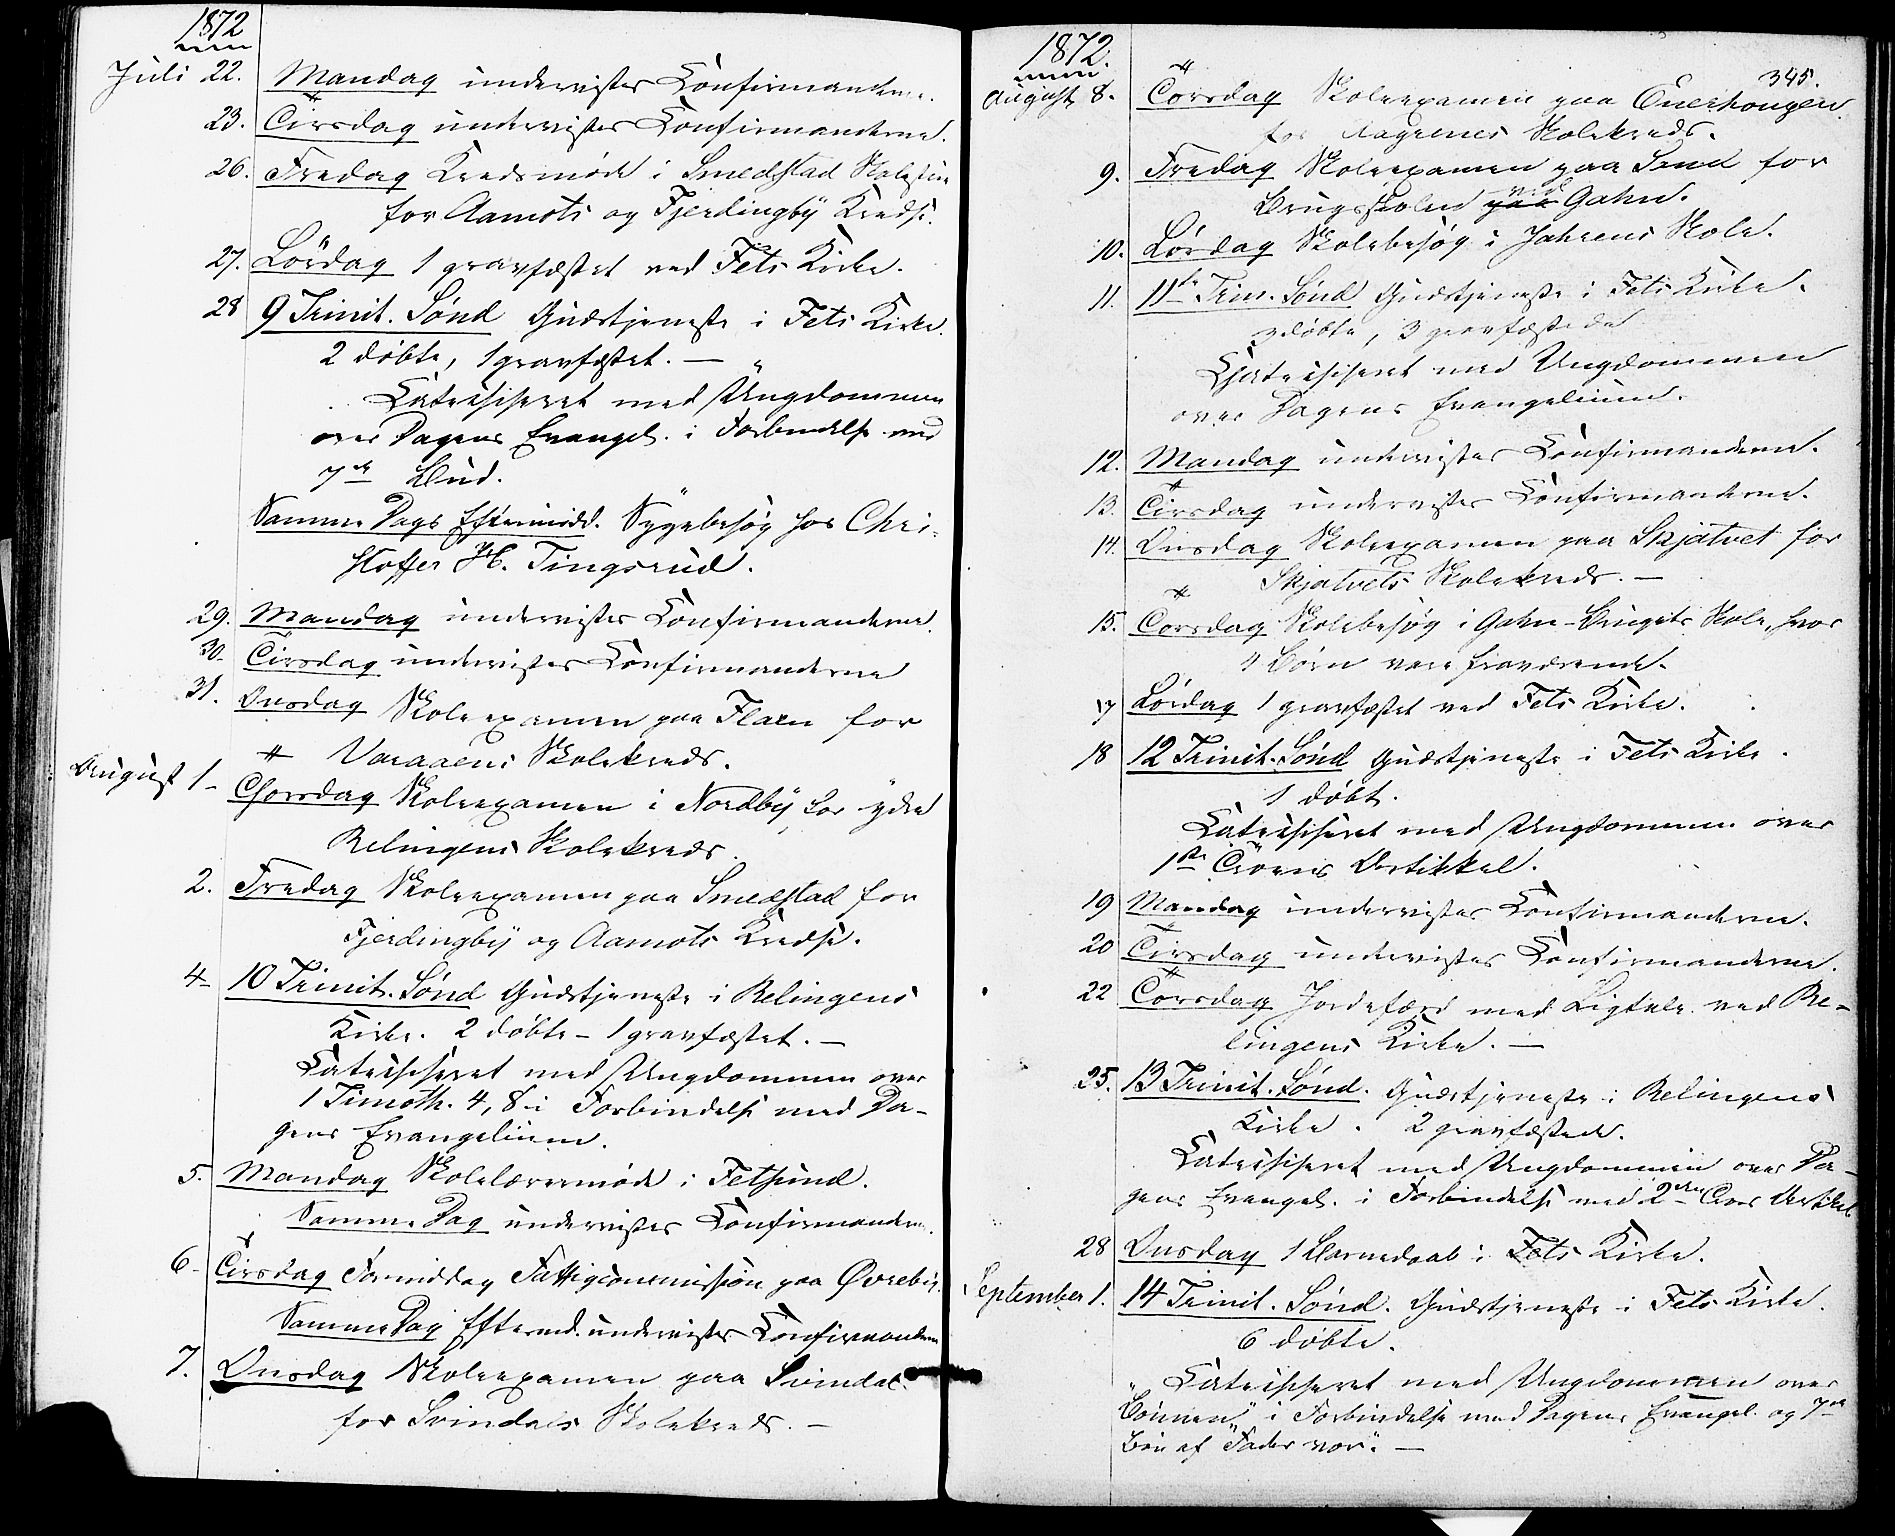 1872
Juli 22. Mandag undervistes Confirmanderne.
23. Tirsdag undervistes Confirmanderne.
26. Fredag Kredsmøde i Smedstad Skolestue
for Aamots og Fjerdingby Kredse.
27. Lørdag 1 gravfæstet ved Fets Kirke.
28 9 Trinit. Sønd Gudstjeneste i Fets Kirke.
2 døbte, 1 gravfæstet. —
Catechiseret med Ungdommen
over Dagens Evangel. i Forbindelse med
7de Bud.
Samme Dags Eftermidd. Sygebesøg hos Chri-
stoffer H. Tingsrud.
29. Mandag undervistes Confirmanderne.
30. Tirsdag undervistes Confirmanderne
31. Onsdag Skoleexamen paa Flaen for
Varaaens Skolekreds.
August 1. Thorsdag Skoleexamen i Nordby for ydre
Relingens Skolekreds.
2. Fredag Skoleexamen paa Smedstad for
Fjerdingby og Aamots Kredse.
4. 10 Trinit. Sønd Gudstjeneste i Relingens
Kirke. 2 døbte - 1 gravfæstet. —
Catechiseret med Ungdommen over
1 Timoth. 4, 8 i Forbindelse med Da-
gens Evangelium.
5. Mandag Skolelærermøde i Fetsund.
Samme Dag undervistes Confirmanderne.
6. Tirsdag Formiddag Fattigcommission paa Øvreby.
Samme Dag Eftermd. undervistes Confirmanderne
7. Onsdag Skoleexamen paa Svindal
for Svindals Skolekreds. —
1872.
345.
August 8. Torsdag Skoleexamen paa
for Skolekreds.
9. Fredag Skoleexamen paa for
Brugsskolen paa ved Gahn.
10. Lørdag Skolebesøg i Jahrens Skole.
11. 11te Trin. Sønd Gudstjeneste i Fets Kirke.
3 døbte, 3 gravfæstede
Chatechiseret med Ungdommen
over Dagens Evangelium.
12. Mandag undervistes Confirmanderne.
13. Tirsdag undervistes Confirmanderne.
14. Onsdag Skoleexamen paa Skjatvet for
Skjatvets Skolekreds. —
15. Torsdag Skolebesøg i Gahn-Brugets Skole, hvor
4 Børn vare fraværende.
17 Lørdag 1 gravfæstet ved Fets Kirke.
18 12 Trinit. Sønd Gudstjeneste i Fets Kirke.
1 døbt.
Catechiseret med Ungdommen over
1ste Troens Artikkel.
19 Mandag undervistes Confirmanderne.
20 Tirsdag undervistes Confirmanderne.
22 Torsdag Jordefærd med Ligtale ved Re-
lingens Kirke. —
25. 13 Trinit. Sønd. Gudstjeneste i Relingens
Kirke. 2 gravfæstede.
Catechiseret med Ungdommen over Da-
gens Evangel. i Forbindelse med 2den Troes Artikel
28 Onsdag 1 Barnedaab i Fets Kirke.
September 1. 14 Trinit. Sønd. Gudstjeneste i Fets Kirke.
6 døbte.
Catechiseret med Ungdommen over
"Bønnen" i Forbindelse med Dagens Evangel. og 7de
Bøn af "Fader vor". —